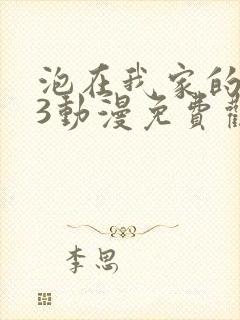 泡在我家的
3動漫免費
李思